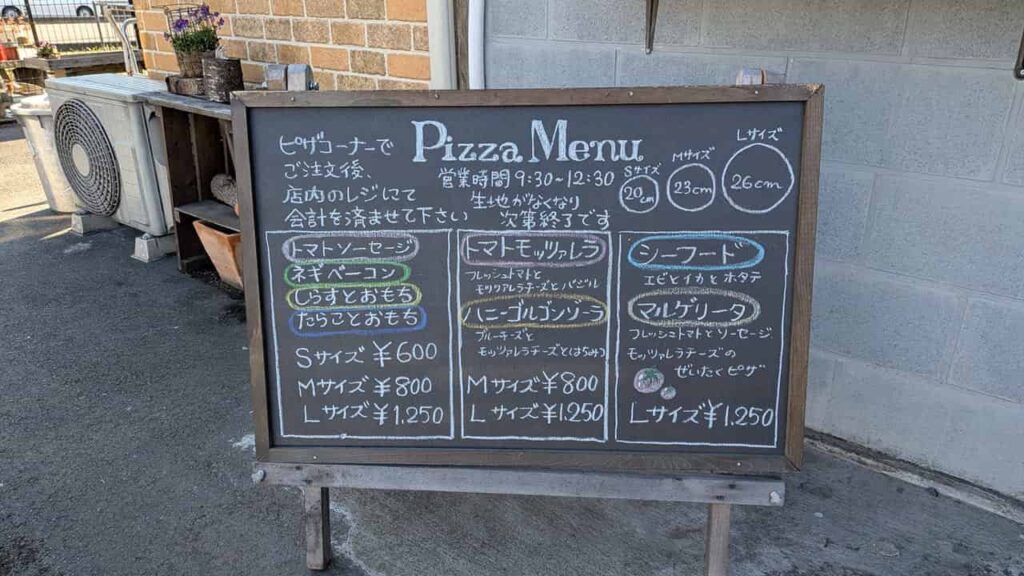 Pizza Menu
ピザコーナーで
ご注文後、
店内のレジにて
会計を済ませて下さい
営業時間 9:30~12:30
生地がなくなり
次第終了です
Sサイズ
20cm
Mサイズ
23cm
Lサイズ
26cm
トマトソーセージ
ネギベーコン
しらすとおもち
たらことおもち
Sサイズ ¥600
Mサイズ ¥800
Lサイズ ¥1,250
トマトモッツァレラ
フレッシュトマトと
モッツァレラチーズとバジル
ハニーゴルゴンゾーラ
ブルーチーズと
モッツァレラチーズとはちみつ
Mサイズ ¥800
Lサイズ ¥1,250
シーフード
エビとイカとホタテ
マルゲリータ
フレッシュトマトとソーセージ
モッツァレラチーズの
ぜいたくピザ
Lサイズ ¥1,250